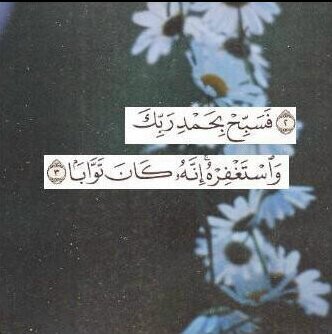 ٢ فَسَبِّحْ بِحَمْدِ رَبِّكَ
وَٱسْتَغْفِرْهُ ۚ إِنَّهُۥ كَانَ تَوَّابًۢا ٣